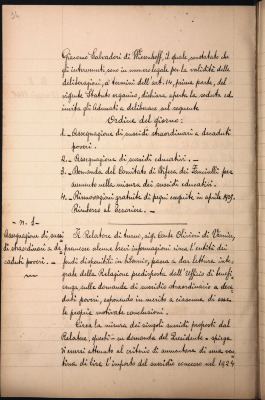 Giacomo Calvadori di Wiesenhoff, il quale, constatato che
gli intervenuti, sono in numero legale per la validità delle
deliberazioni, a termini dell'art. 14, prima parte, del
vigente Statuto organico, dichiara aperta la seduta ed
invita gli Adunati a deliberare sul seguente
Ordine del giorno:
1.- Assegnazione di sussidi straordinari a decaduti
poveri.
2.- Assegnazione di sussidi educativi. -
3.- Domanda del Comitato di Difesa dei Fanciulli per
aumento nella misura dei sussidi educativi.
4.- Rinnovazioni gratuite di pegni eseguite in aprile 1925.
Rimborso al Tesoriere. -
- n. 1 -
Assegnazione di sussi
di straordinari a de
caduti poveri. -
Il Relatore di turno, sig. Conte Olivieri di Vernier,
premesse alcune brevi informazioni circa l'entità dei
fondi disponibili in bilancio, passa a dar lettura inte
grale della Relazione predisposta dall'ufficio di benefi
cenza, sulle domande di sussidio straordinario a deca
duti poveri, esponendo in merito a ciascuna di esse
le proprie motivate conclusioni. -
Circa la misura dei singoli sussidi proposti dal
Relatore, questi - su domanda del Presidente - spiega
d'essersi attenuto al criterio di aumentare di una ven
tina di lire l'importo del sussidio concesso nel 1924